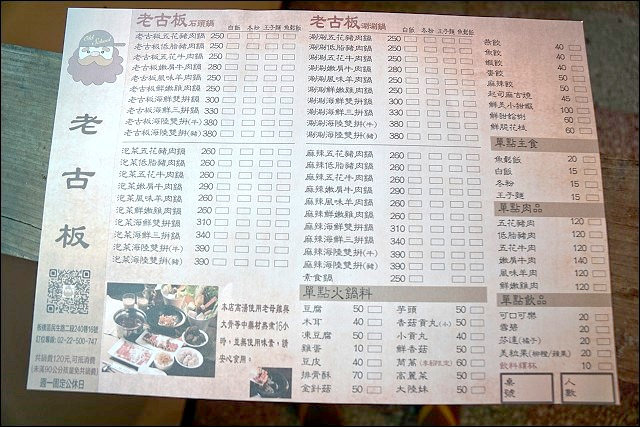 老古板
老古板石頭鍋 白飯 冬粉 王子麵 魚鬆飯
老古板五花豬肉鍋 250
老古板低脂豬肉鍋 250
老古板五花牛肉鍋 250
老古板嫩肩牛肉鍋 280
老古板風味羊肉鍋 250
老古板鮮嫩雞肉鍋 250
老古板海鮮雙拼鍋 300
老古板海鮮三拼鍋 330
老古板海陸雙拼(牛) 380
老古板海陸雙拼(豬) 380
泡菜五花豬肉鍋 260
泡菜低脂豬肉鍋 260
泡菜五花牛肉鍋 260
泡菜嫩肩牛肉鍋 290
泡菜風味羊肉鍋 260
泡菜鮮嫩雞肉鍋 260
泡菜海鮮雙拼鍋 310
泡菜海鮮三拼鍋 340
泡菜海陸雙拼(牛) 390
泡菜海陸雙拼(豬) 390
老古板涮涮鍋 白飯 冬粉 王子麵 魚鬆飯
涮涮五花豬肉鍋 250
涮涮低脂豬肉鍋 250
涮涮五花牛肉鍋 250
涮涮嫩肩牛肉鍋 280
涮涮風味羊肉鍋 250
涮涮鮮嫩雞肉鍋 250
涮涮海鮮雙拼鍋 300
涮涮海鮮三拼鍋 330
涮涮海陸雙拼(牛) 380
涮涮海陸雙拼(豬) 380
麻辣五花豬肉鍋 260
麻辣低脂豬肉鍋 260
麻辣五花牛肉鍋 260
麻辣嫩肩牛肉鍋 290
麻辣風味羊肉鍋 260
麻辣鮮嫩雞肉鍋 260
麻辣海鮮雙拼鍋 310
麻辣海鮮三拼鍋 340
麻辣海陸雙拼(牛) 390
麻辣海陸雙拼(豬) 390
素食鍋 250
單點火鍋料
豆腐 50
木耳 40
凍豆腐 50
雞蛋 10
豆皮 40
排骨酥 70
金針菇 50
芋頭 50
香菇貢丸(小) 50
小貢丸 40
鮮香菇 50
茼蒿(季節限定) 60
高麗菜 50
大陸妹 50
燕餃 40
魚餃 40
蝦餃 40
蛋餃 50
麻辣餃 50
起司麻古燒 45
鮮美小甜蝦 100
鮮甜蛤蜊 60
鮮脆花枝 60
單點主食
魚鬆飯 20
白飯 15
冬粉 15
王子麵 15
單點肉品
五花豬肉 120
低脂豬肉 120
五花牛肉 120
嫩肩牛肉 140
風味羊肉 120
鮮嫩雞肉 120
單點飲品
可口可樂 20
雪碧 20
芬達(橘子) 20
美粒果(柳橙/蘋果) 20
飲料續杯 10
桌號
人數
本店高湯使用老母雞與
大骨等中藥材熬煮15小
時,並無使用味素,請
安心食用。
板橋區民生路二段240巷19號
訂位專線:02-22-500-747
共鍋費120元,可抵消費
(未滿90公分孩童免共鍋費)
週一固定公休日